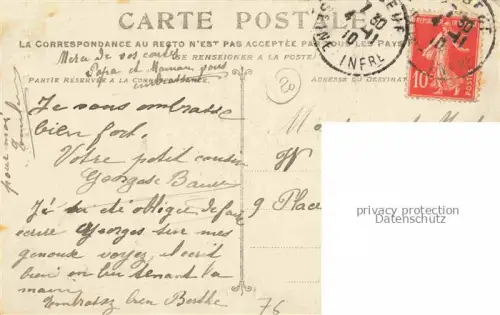 CARTE POSTALE
LA CORRESPONDANCE AU RECTO N'EST PAS ACCEPTÉE PAR TOUS LES PAYS
SE RENSEIGNER A LA POSTE
PARTIE RÉSERVÉE A LA CORRESPONDANCE
ADRESSE DU DESTINAT
Merci de vos cartes
Papa et Maman vous
embrassent
pour moi
Je vous embrasse
bien fort.
Votre petit cousin
Georges
J'ai été obligé de faire
écrire Georges sur mes
genoux voyez, il écrit
bien en lui tenant la
main
Embrassez bien Berthe
9 Place
7 30
4 -11
10
INFRE
10c
80
76
privacy protection
Datenschutz